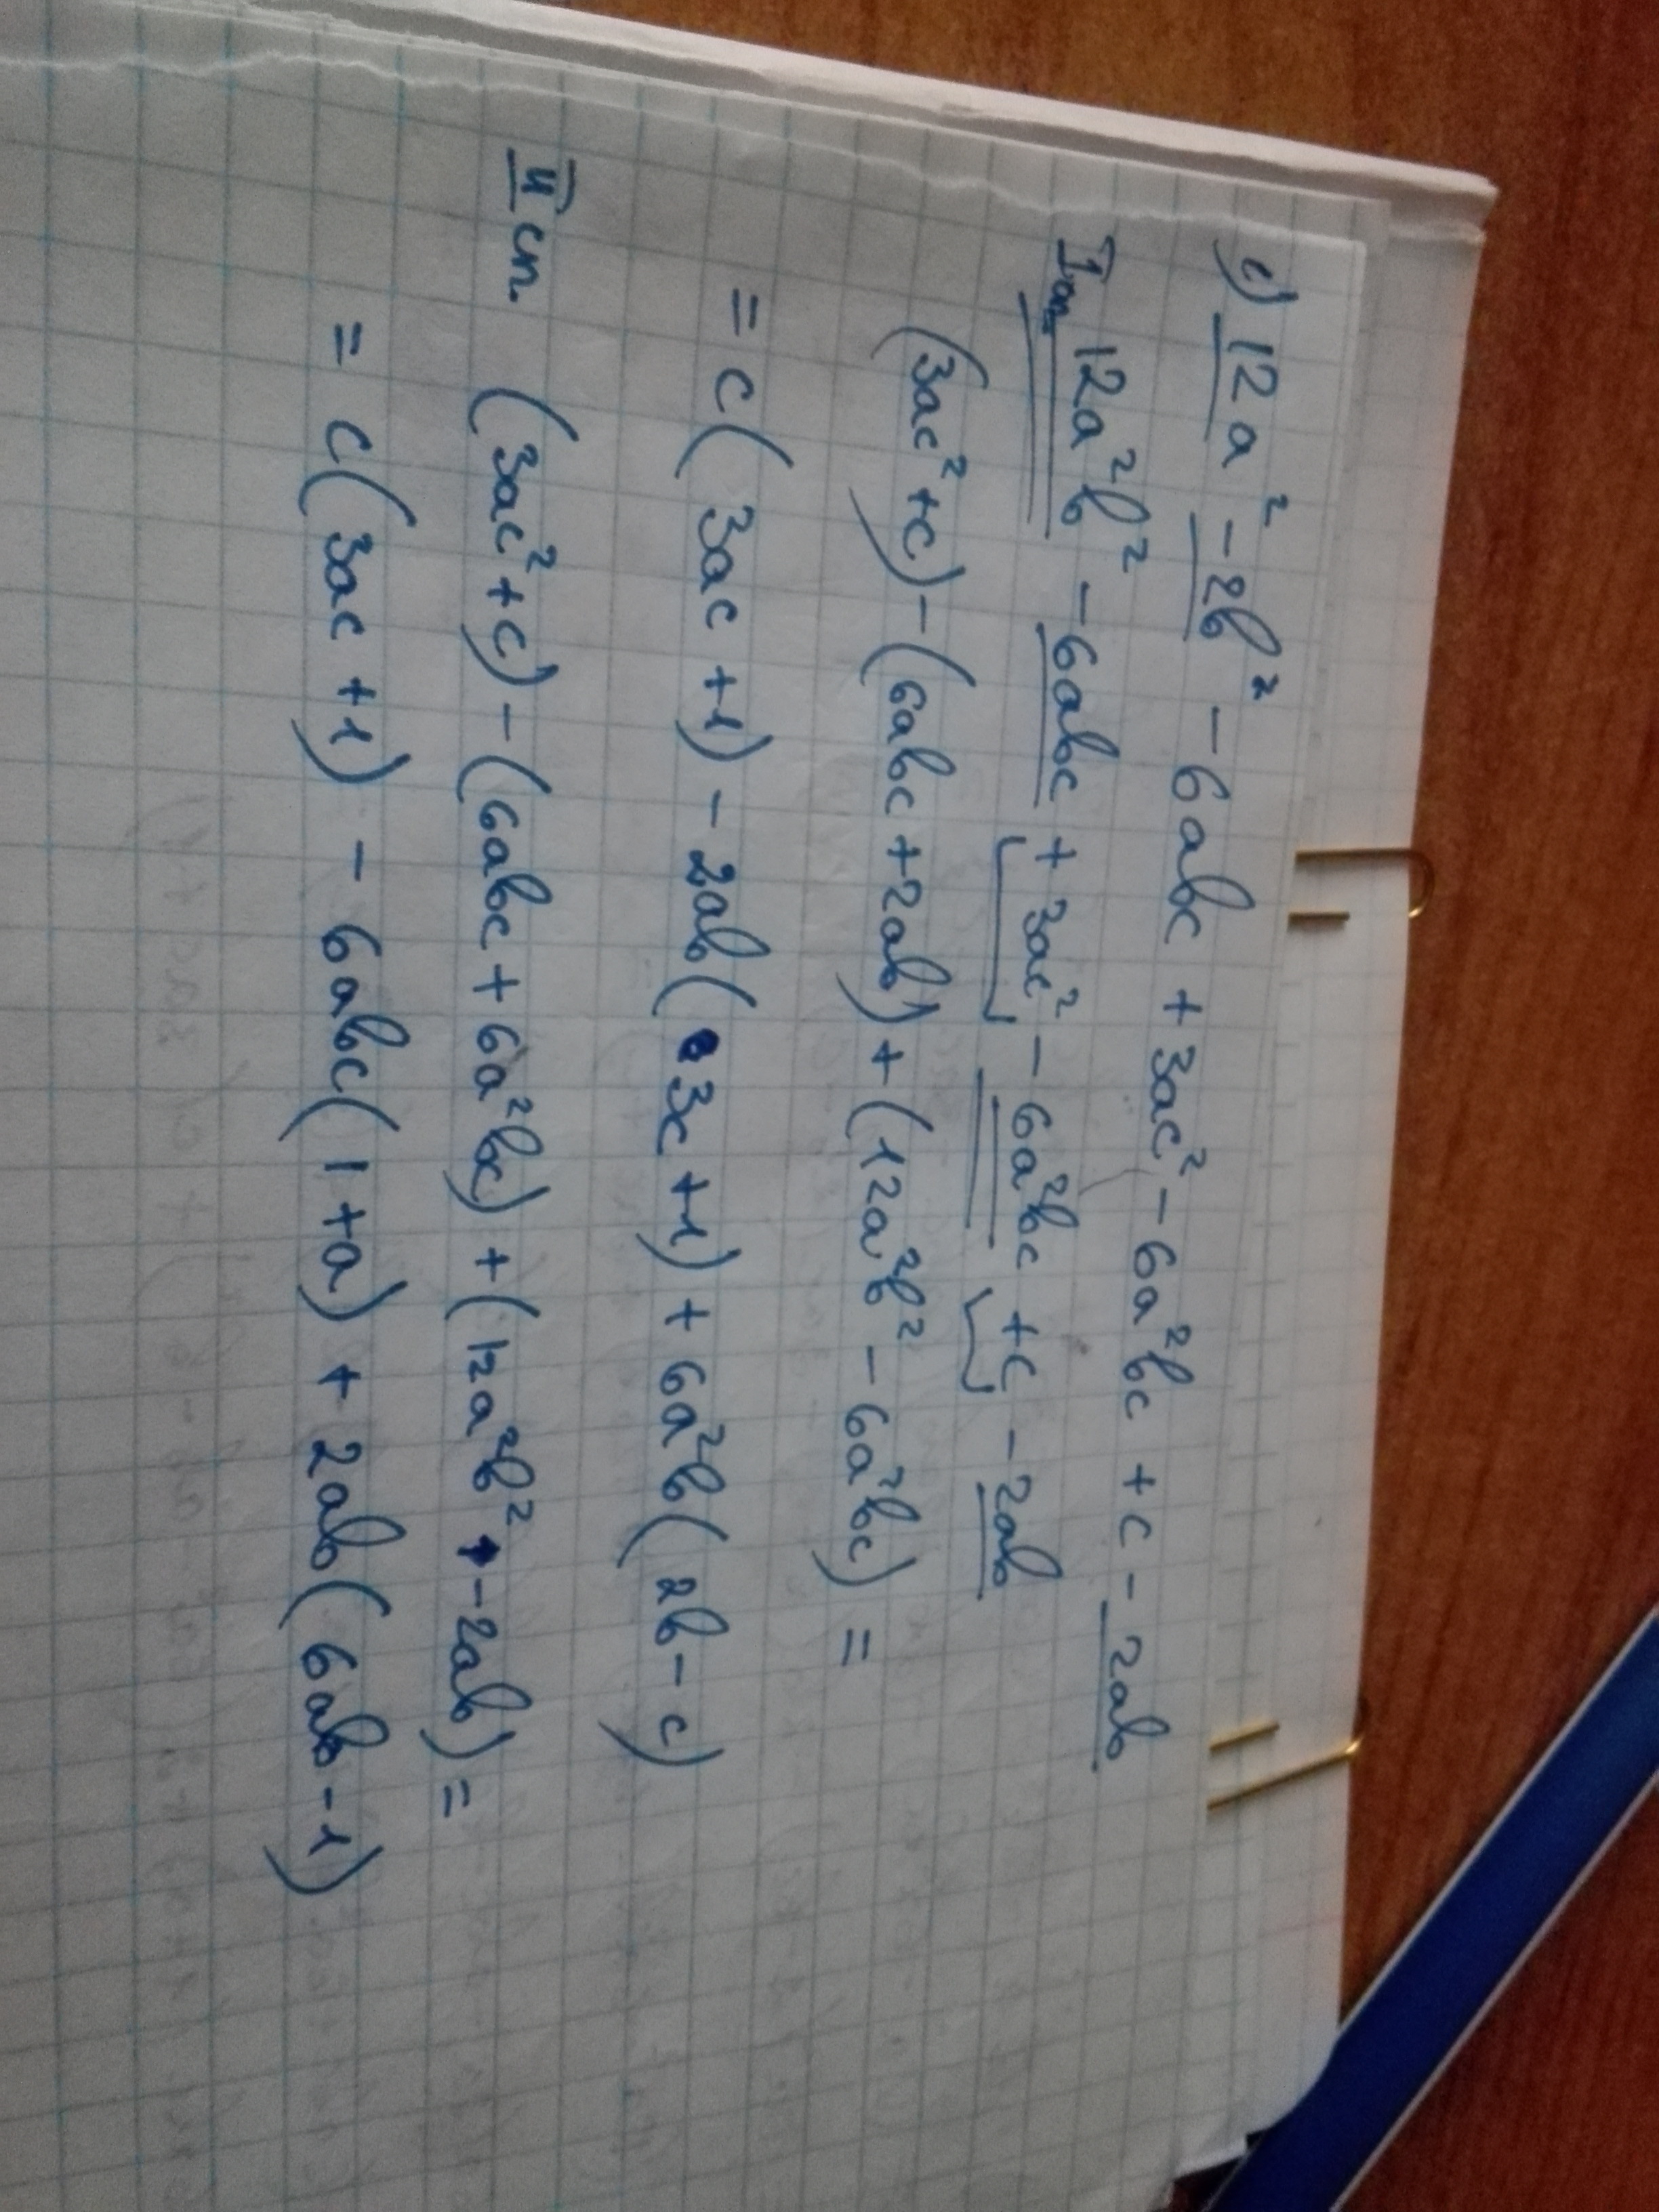 с) 12a² - 2b² - 6abc + 3ac² - 6a²bc + c - 2ab
I сп. 12a²b² - 6abc + 3ac² - 6a²bc + c - 2ab
(3ac² + c) - (6abc + 2ab) + (12a²b² - 6a²bc) =
= c(3ac + 1) - 2ab(3c + 1) + 6a²b(2b - c)
II сп. (3ac² + c) - (6abc + 6a²bc) + (12a²b² - 2ab) =
= c(3ac + 1) - 6abc(1 + a) + 2ab(6ab - 1)